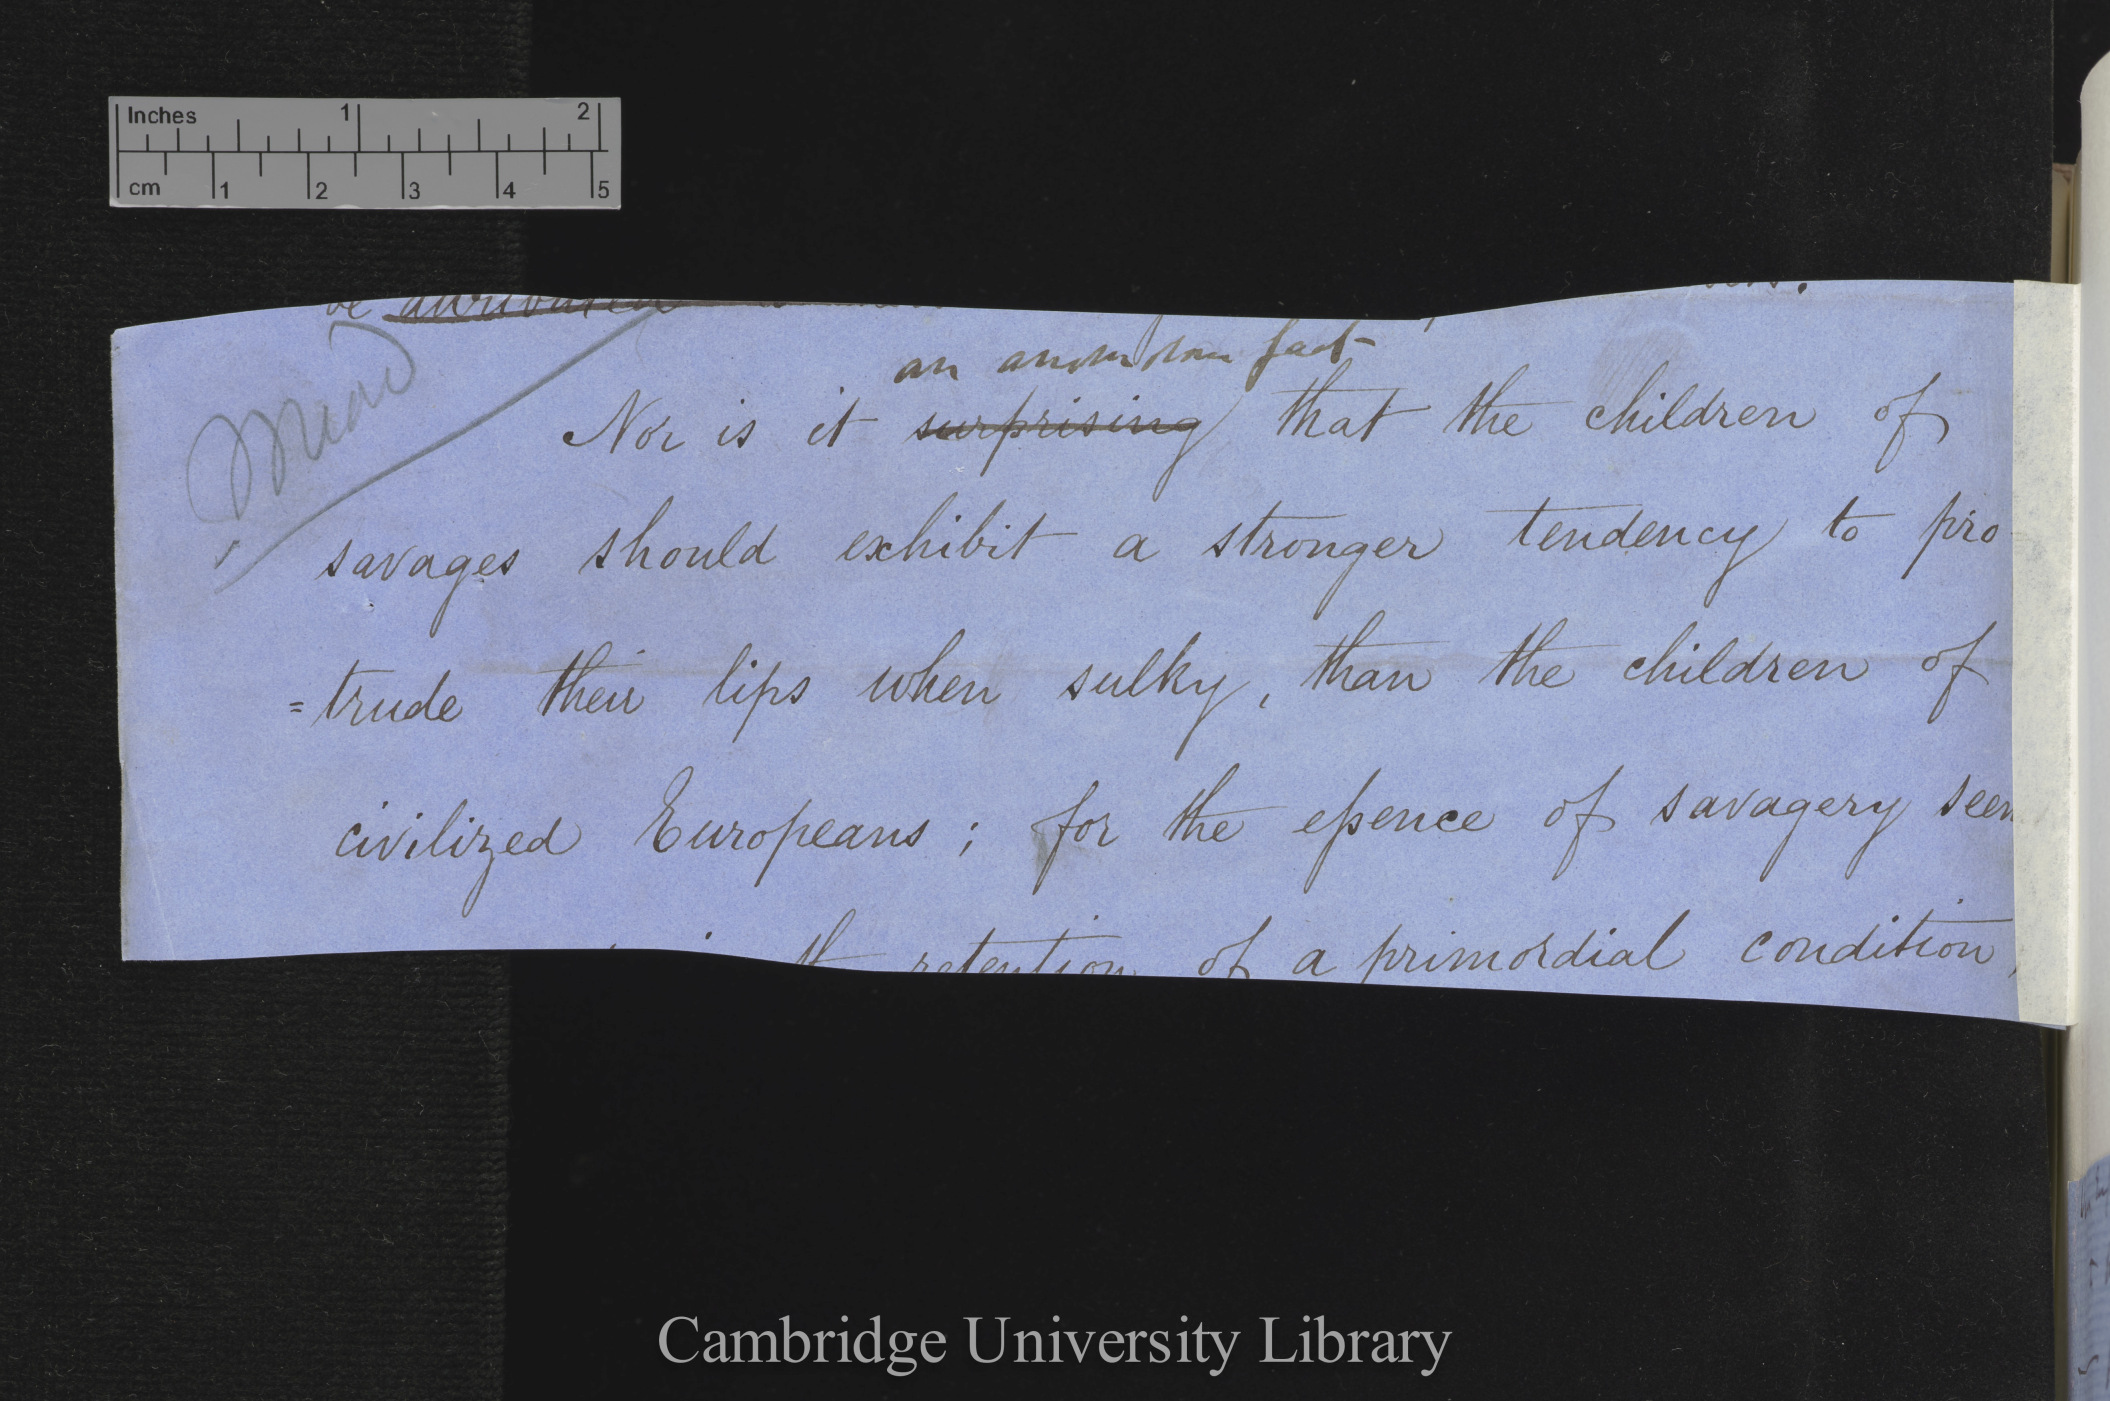 Inches 1 2
cm 1 2 3 4 5
be attributed
an anomalous fact
Nor is it surprising that the children of
savages should exhibit a stronger tendency to pro
=trude their lips when sulky, than the children of
civilized Europeans; for the eſsence of savagery seem
the retention of a primordial condition,
Cambridge University Library